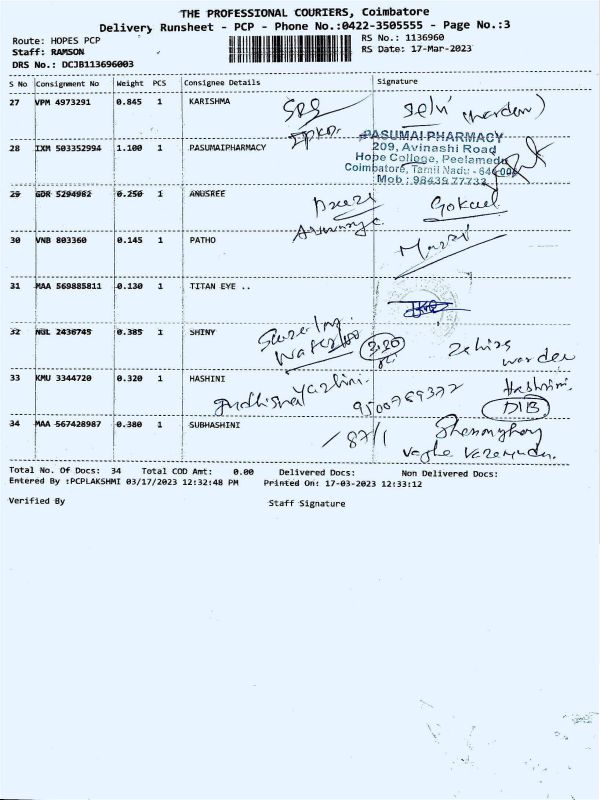 THE PROFESSIONAL COURIERS, Coimbatore
Delivery Runsheet - PCP - Phone No.:0422-3505555 - Page No.:3
Route: HOPES PCP RS No.: 1136960
Staff: RAMSON RS Date: 17-Mar-2023
DRS No.: DCJB113696003
S No Consignment No Weight PCS Consignee Details Signature
27 VPM 4973291 0.845 1 KARISHMA
28 IXM 503352994 1.100 1 PASUMAIPHARMACY
PASUMAI PHARMACY
209, Avinashi Road
Hope College, Peelamedu
Coimbatore, Tamil Nadu - 641 004
Mob : 98439 77732
29 GDR 5294982 0.250 1 ANUSREE
Gokul
30 VNB 803360 0.145 1 PATHO
31 MAA 569885811 0.130 1 TITAN EYE ..
32 NGL 2436745 0.385 1 SHINY
warden
33 KMU 3344720 0.320 1 HASHINI
Yazhini.
9500789372
Hashini.
34 MAA 567428987 0.380 1 SUBHASHINI
87/1
Total No. Of Docs: 34 Total COD Amt: 0.00 Delivered Docs: Non Delivered Docs:
Entered By :PCPLAKSHMI 03/17/2023 12:32:48 PM Printed On: 17-03-2023 12:33:12
Verified By Staff Signature